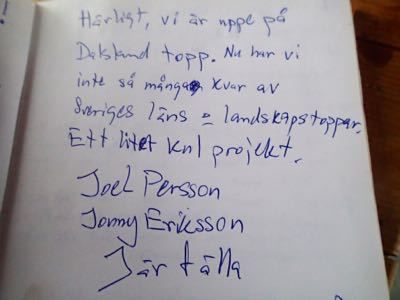 Härligt, vi är uppe på
Dalsland topp. Nu har vi
inte så många kvar av
Sveriges läns o landskapstoppar.
Ett litet kul projekt.
Joel Persson
Jonny Eriksson
Järfälla